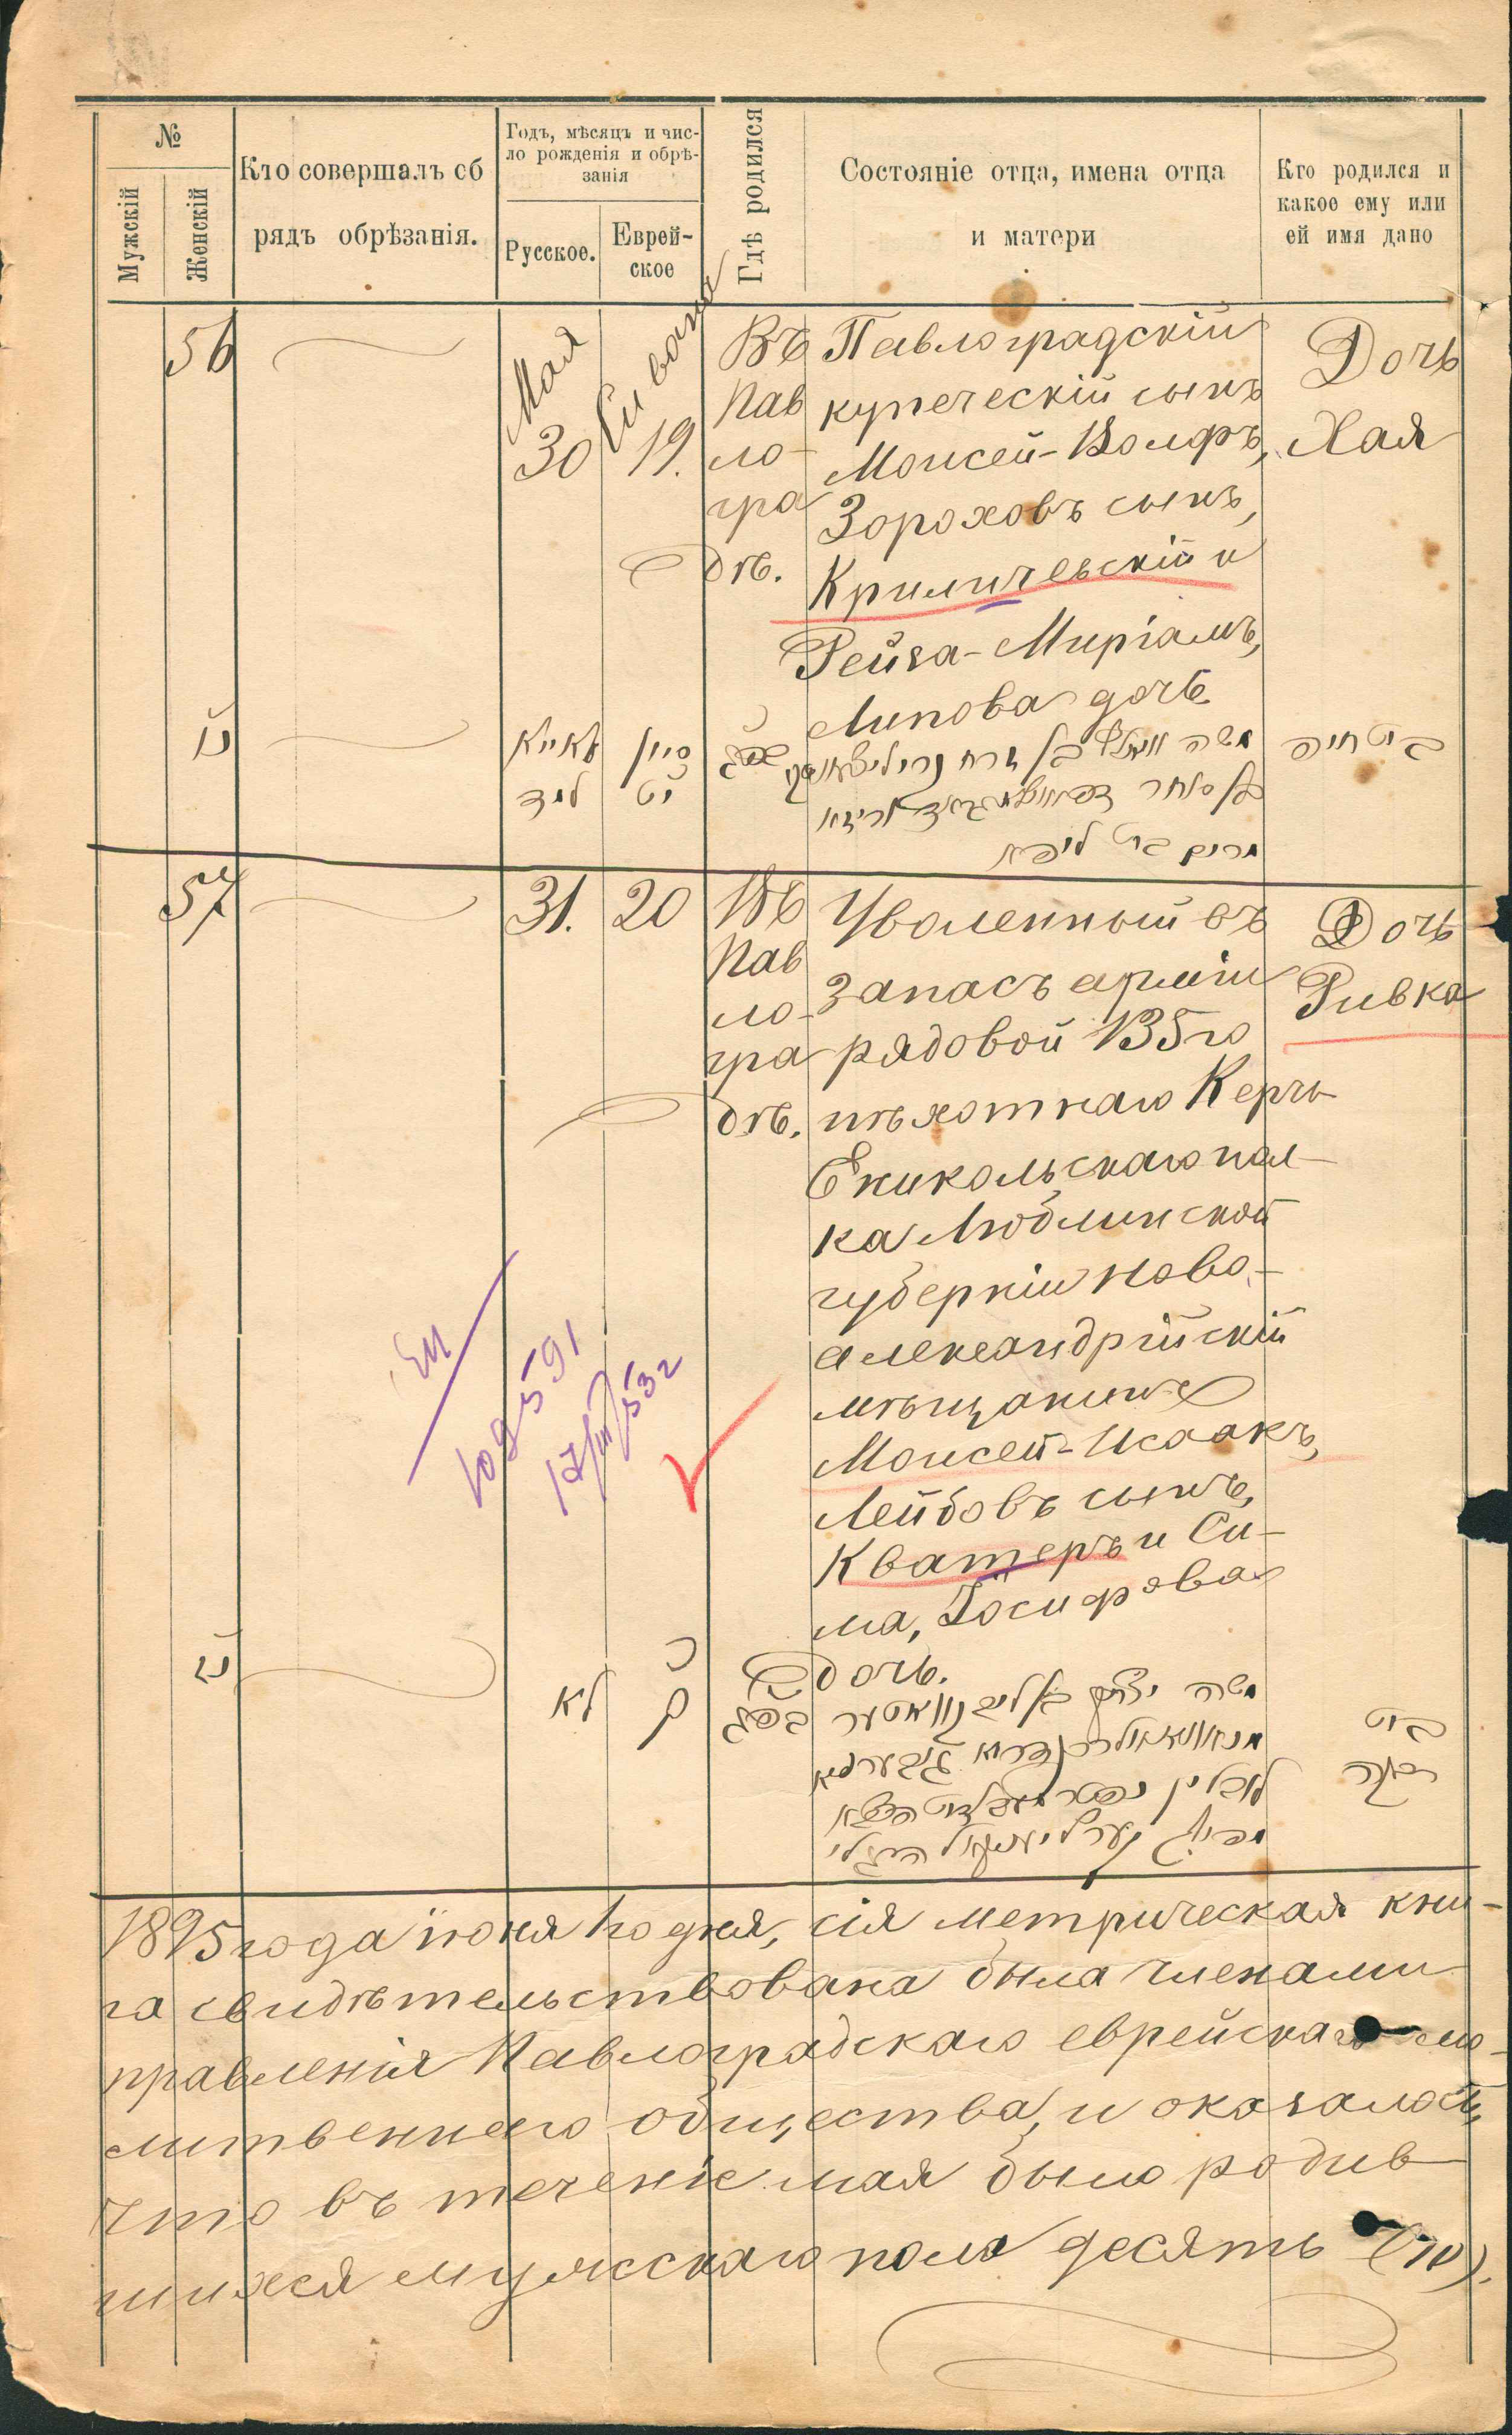 №
Мужскій
Женскій
Кто совершалъ об
рядъ обрѣзанія.
Годъ, мѣсяцъ и чис-
ло рожденія и обрѣ-
занія
Русское.
Еврей-
ское
Гдѣ родился
Состояніе отца, имена отца
и матери
Кто родился и
какое ему или
ей имя дано
56
Мая
30
Сивана
19.
Въ
Пав
ло-
гра
дѣ.
Павлоградскій
купеческій сынъ
Моисей-Волфъ,
Зороховъ сынъ,
Криличевскій и
Рейза-Миріамъ,
Липова дочь
Дочь
Хая
נו
מאייא
סיון
יט
משה וואלף בן זרח
מרים בת ליפא
בת חיה
57
31.
20
Въ
Пав
ло-
гра
дѣ.
Уволенный въ
запасъ арміи
рядовой 135го
пѣхотнаго Керчь
Еникольскаго пол-
ка Люблинской
губерніи Ново-
александрійскій
мѣщанинъ
Моисей-Исаакъ,
Лейбовъ сынъ,
Кватеръ и Си-
ма, Іосифова
дочь.
Дочь
Ривка
נז
לא
כ
משה יצחק בן ליב קוואטער
לובלין
בת
רבקה
1895 года іюня 1го дня, сія метрическая кни-
га свидѣтельствована была членами
правленія Павлоградскаго еврейскаго мо-
литвеннаго общества, и оказалось,
что въ теченіе мая было родив
шихся мужскаго пола десять (10).